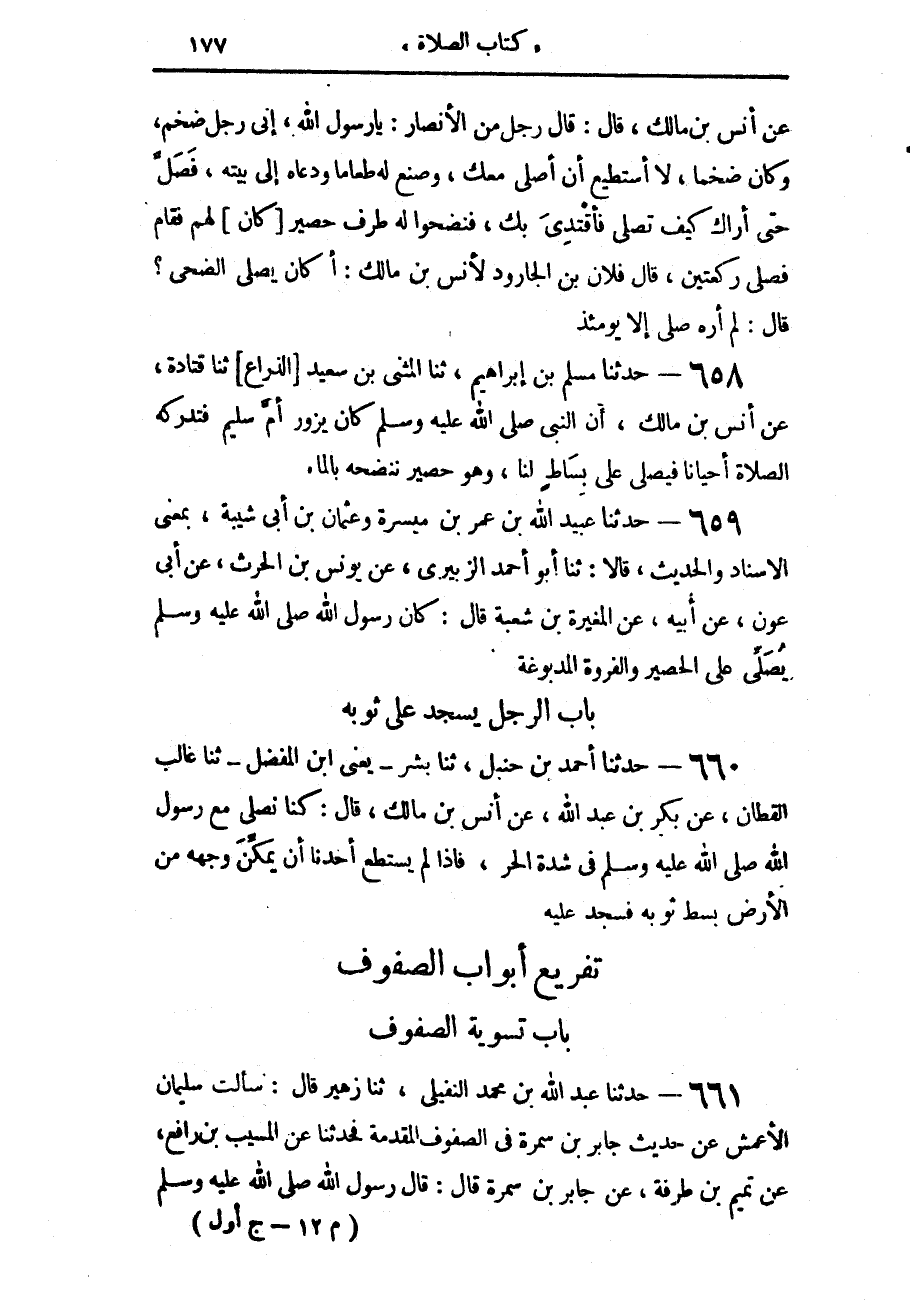 « كتاب الصلاة » ١٧٧
عن أنس بن مالك ، قال : قال رجل من الأنصار : يارسول الله ، إنى رجل ضخم،
وكان ضخما ، لا أستطيع أن أصلى معك ، وصنع له طعاما ودعاه إلى بيته ، فَصَلِّ
حتى أراك كيف تصلى فأقْتدِىَ بك ، فنضحوا له طرف حصير [ كان ] لهم فقام
فصلى ركعتين ، قال فلان بن الجارود لأنس بن مالك : أكان يصلى الضحى ؟
قال : لم أره صلى إلا يومئذ
٦٥٨ — حدثنا مسلم بن إبراهيم ، ثنا المثنى بن سعيد [الذراع] ثنا قتادة ،
عن أنس بن مالك ، أن النبى صلى الله عليه وسلم كان يزور أمَّ سليم فتدركه
الصلاة أحيانا فيصلى على بِسَاطٍ لنا ، وهو حصير ننضحه بالماء
٦٥٩ — حدثنا عبيد الله بن عمر بن ميسرة وعثمان بن أبى شيبة ، بمعنى
الاسناد والحديث ، قالا : ثنا أبو أحمد الزبيرى ، عن يونس بن الحرث ، عن أبى
عون ، عن أبيه ، عن المغيرة بن شعبة قال : كان رسول الله صلى الله عليه وسلم
يُصَلِّى على الحصير والفروة المدبوغة
باب الرجل يسجد على ثوبه
٦٦٠ — حدثنا أحمد بن حنبل ، ثنا بشر ـ يعنى ابن المفضل ـ ثنا غالب
القطان ، عن بكر بن عبد الله ، عن أنس بن مالك ، قال : كنا نصلى مع رسول
الله صلى الله عليه وسلم فى شدة الحر ، فاذا لم يستطع أحدنا أن يمكِّنَ وجهه من
الأرض بسط ثوبه فسجد عليه
تفريع أبواب الصفوف
باب تسوية الصفوف
٦٦١ — حدثنا عبد الله بن محمد النفيلى ، ثنا زهير قال : سألت سليمان
الأعمش عن حديث جابر بن سمرة فى الصفوف المقدمة فحدثنا عن المسيب بن رافع،
عن تميم بن طرفة ، عن جابر بن سمرة قال : قال رسول الله صلى الله عليه وسلم
( م ١٢ — ج أول )